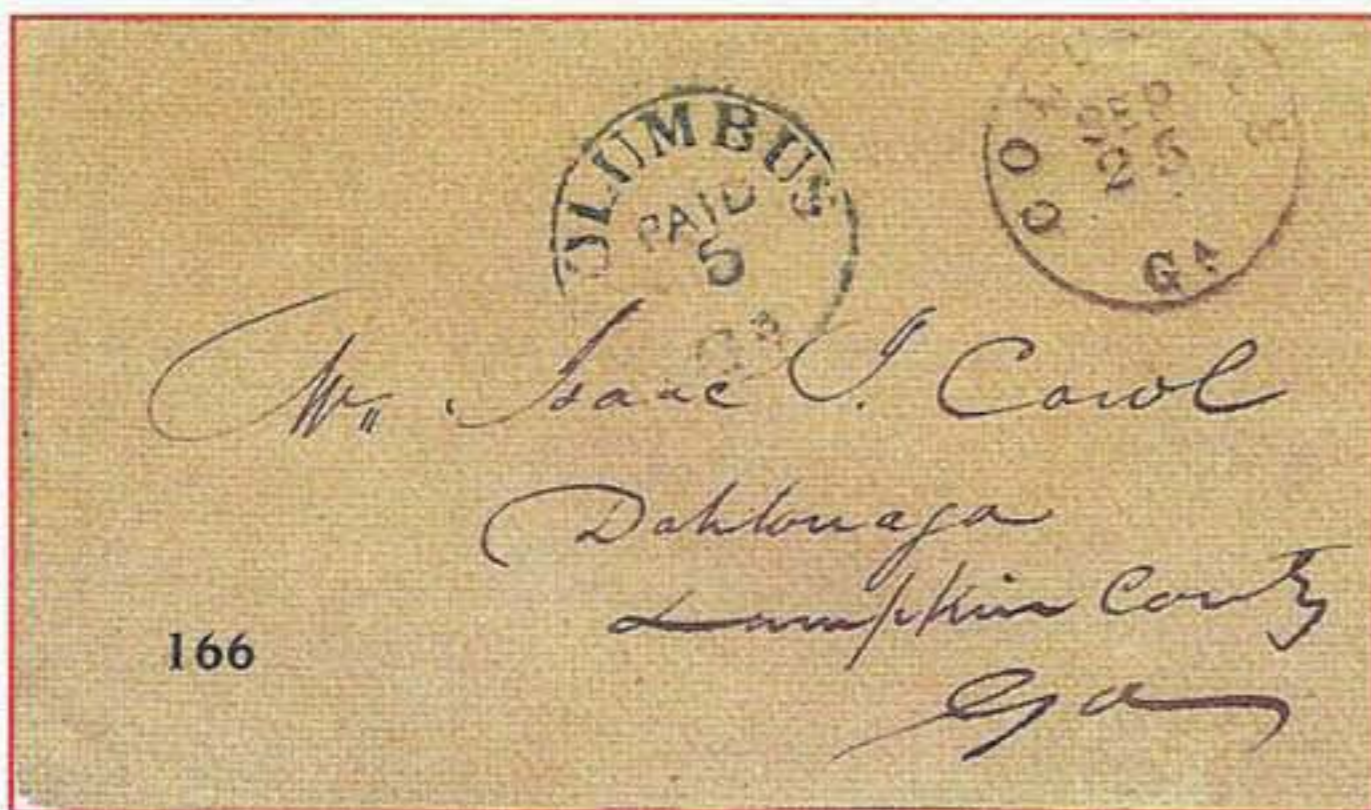 OLUMBUS
PAID
5
Ga
CO
SEP
25
GA
Mr Isaac J. Carol
Dahlonaga
Lumpkin County
Ga
166